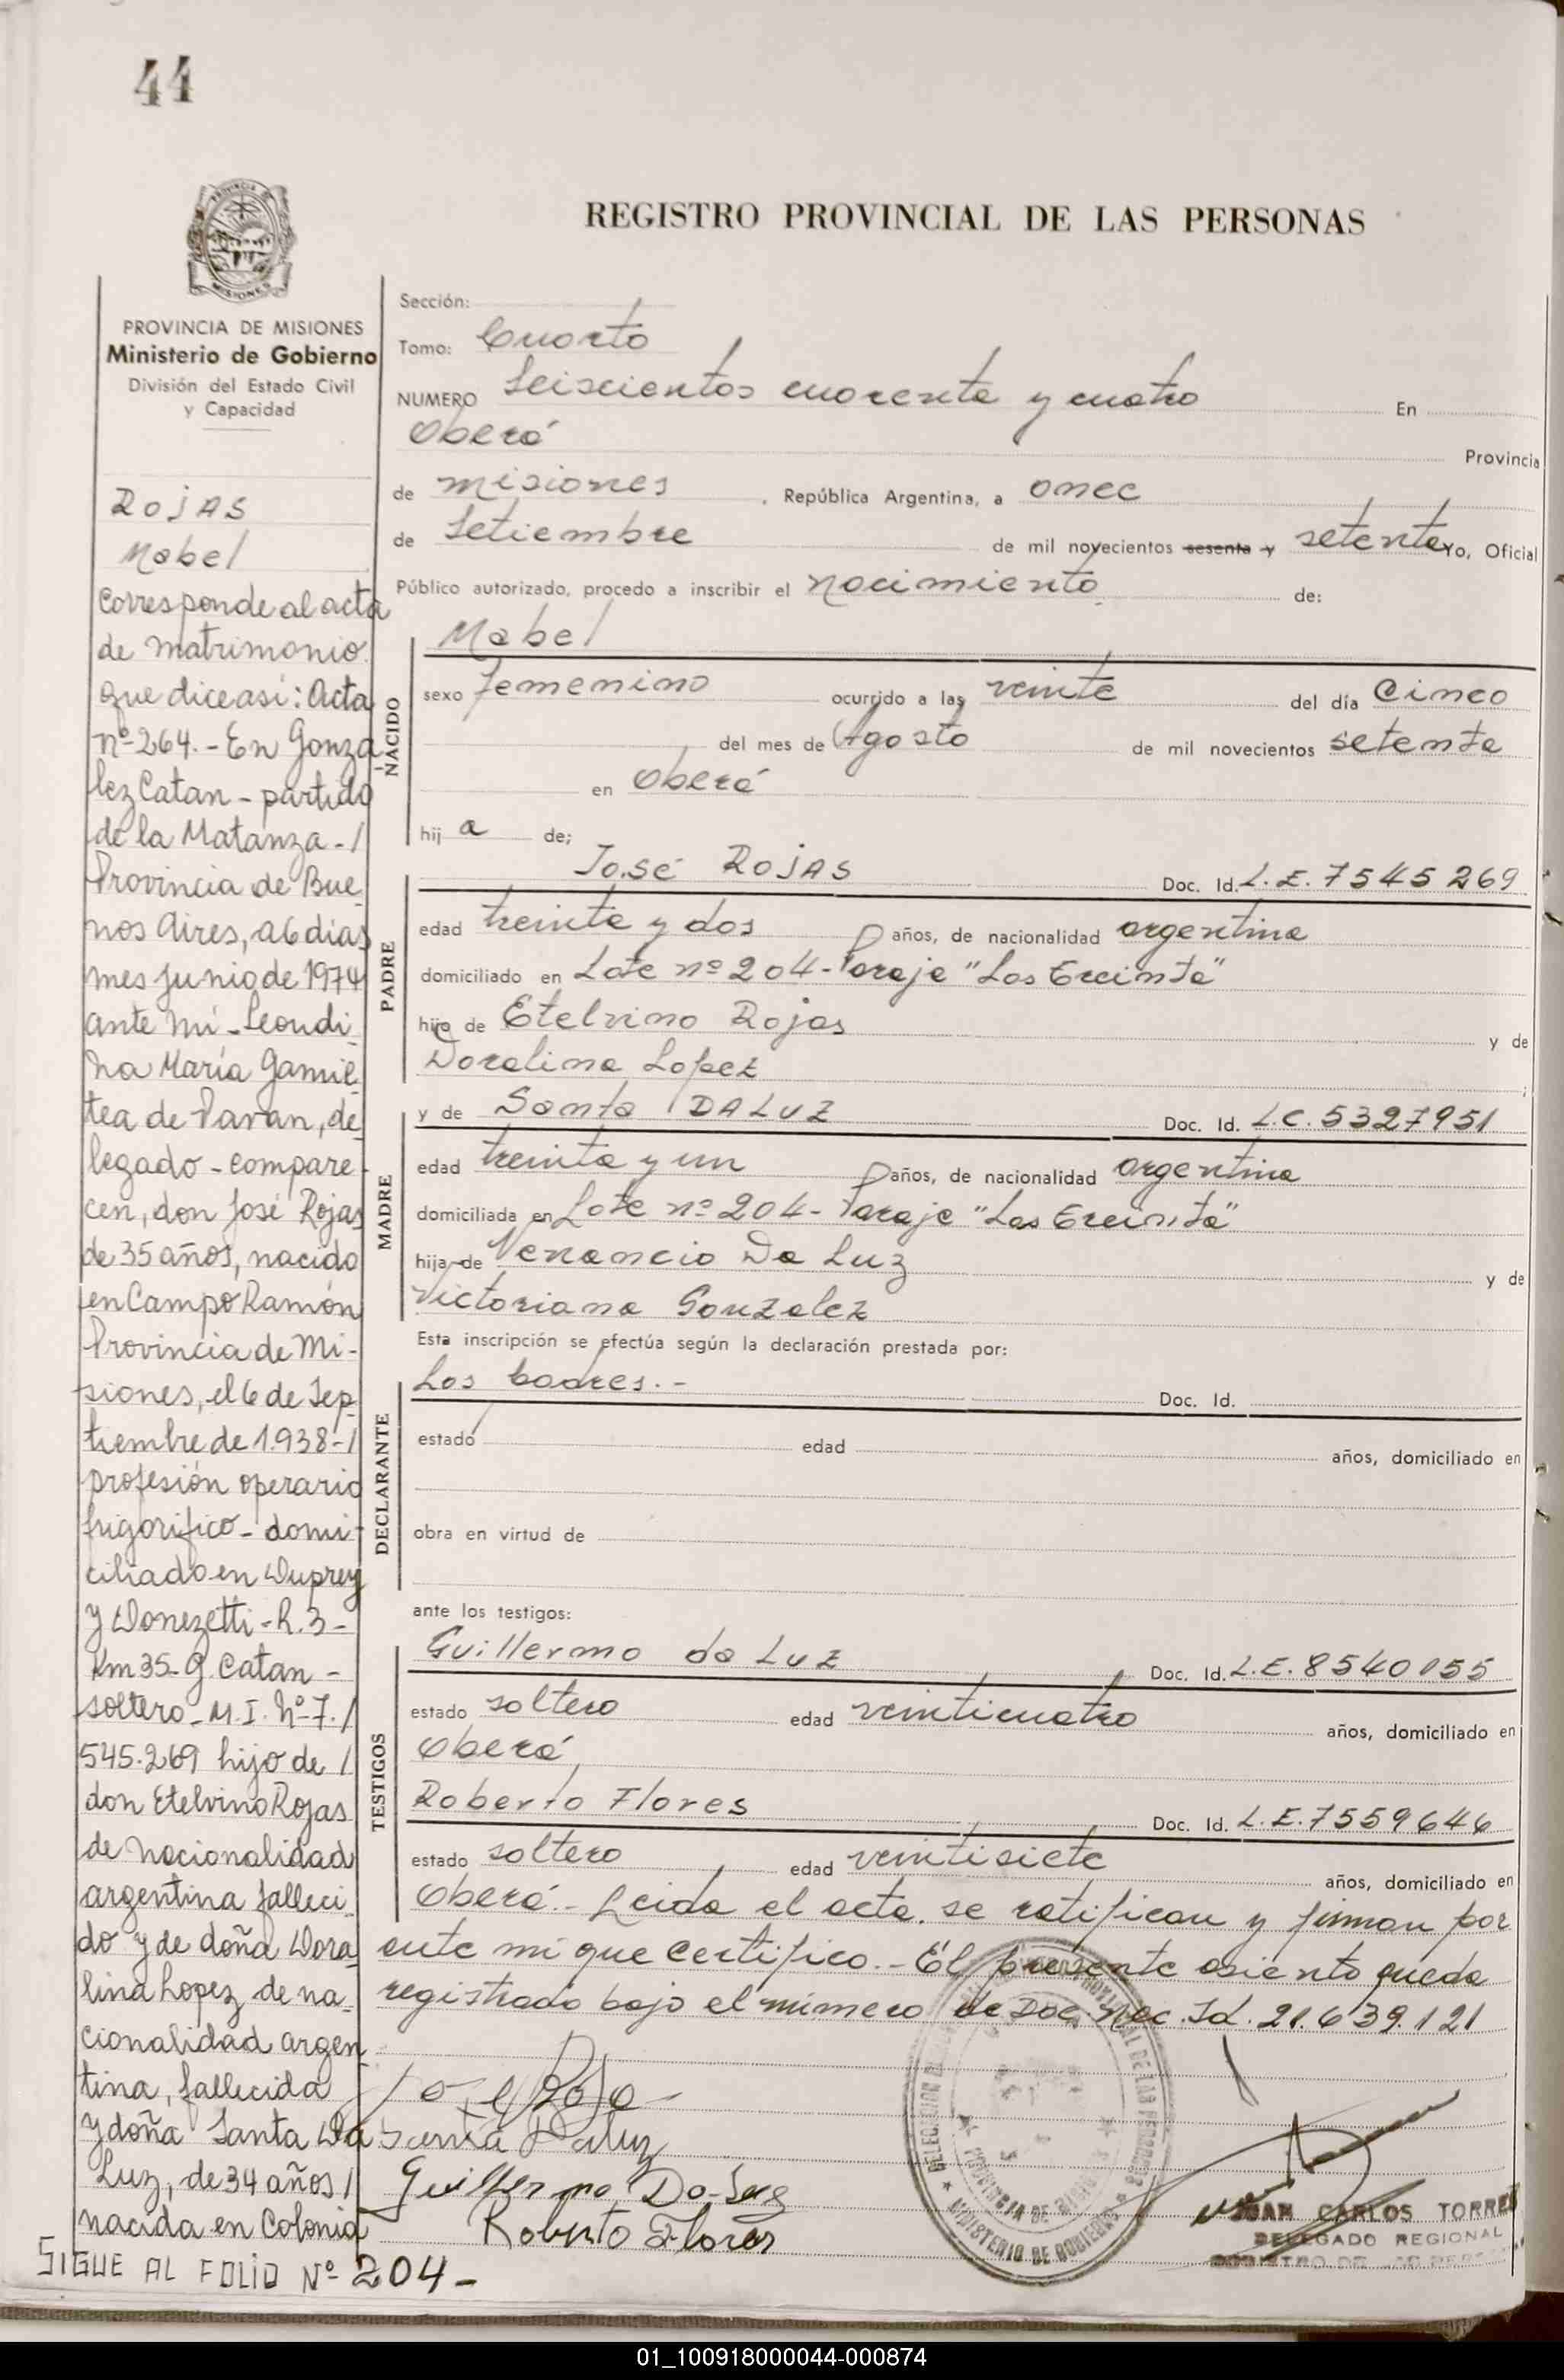 44
REGISTRO PROVINCIAL DE LAS PERSONAS
PROVINCIA DE MISIONES
Ministerio de Gobierno
División del Estado Civil
y Capacidad
ROJAS
Mabel
Corresponde al acta
de matrimonio
que dice así: Acta
nº 264.- En Gonza
lez Catan - partido
de la Matanza - /
Provincia de Bue
nos Aires, a 6 dias
mes junio de 1974
ante mí - Leondi
na María
tea de Pavan, de
legado - compare
cen, don José Rojas
de 35 años, nacido
en Campo Ramón
Provincia de Mi-
siones, el 6 de Sep
tiembre de 1.938 - /
profesión operario
frigorifico - domi
ciliado en Duprey
y Donezetti - R. 3 -
Km 35 - G. Catan -
soltero - M. I. Nº 7. /
545.269 hijo de /
don Etelvino Rojas
de nacionalidad
argentina falleci
do y de doña Dora
lina Lopez de na
cionalidad argen
tina, fallecida
y doña Santa Da
Luz, de 34 años /
nacida en Colonia
SIGUE AL FOLIO Nº 204 -
Sección:
Tomo: Cuarto
NUMERO Seiscientos cuarenta y cuatro En
Oberá Provincia
de Misiones , República Argentina, a once
de Setiembre de mil novecientos sesenta y setenta Yo, Oficial
Público autorizado, procedo a inscribir el nacimiento de:
NACIDO
Mabel
sexo femenino ocurrido a las veinte del día Cinco
del mes de Agosto de mil novecientos setenta
en Oberá
hij a de;
PADRE
José ROJAS Doc. Id. L.E. 7545269
edad treinta y dos años, de nacionalidad argentina
domiciliado en Lote nº 204 - Paraje "Las Trecinta"
hijo de Etelvino Rojas y de
Doralina Lopez ;
MADRE
y de Santa DALUZ Doc. Id. L.C. 5327951
edad treinta y un años, de nacionalidad argentina
domiciliada en Lote nº 204 - Paraje "Las Trecinta"
hija de Venancio Da Luz y de
Victoriana Gonzalez
Esta inscripción se efectúa según la declaración prestada por:
DECLARANTE
Los padres. - Doc. Id.
estado edad años, domiciliado en
obra en virtud de
ante los testigos:
TESTIGOS
Guillermo da LUZ Doc. Id. L.E. 8540055
estado soltero edad veinticuatro años, domiciliado en
Oberá
Roberto Flores Doc. Id. L.E. 7559646
estado soltero edad veintisiete años, domiciliado en
Oberá.- Leida el acta, se ratifican y firman por
ante mi que certifico.- El presente asiento queda
registrado bajo el número de Doc. Nac. Id. 21.639.121
Santa Daluz
Guillermo Da-Luz
Roberto Flores
MINISTERIO DE GOBIERNO
JUAN CARLOS TORRES
DELEGADO REGIONAL
01_100918000044-000874